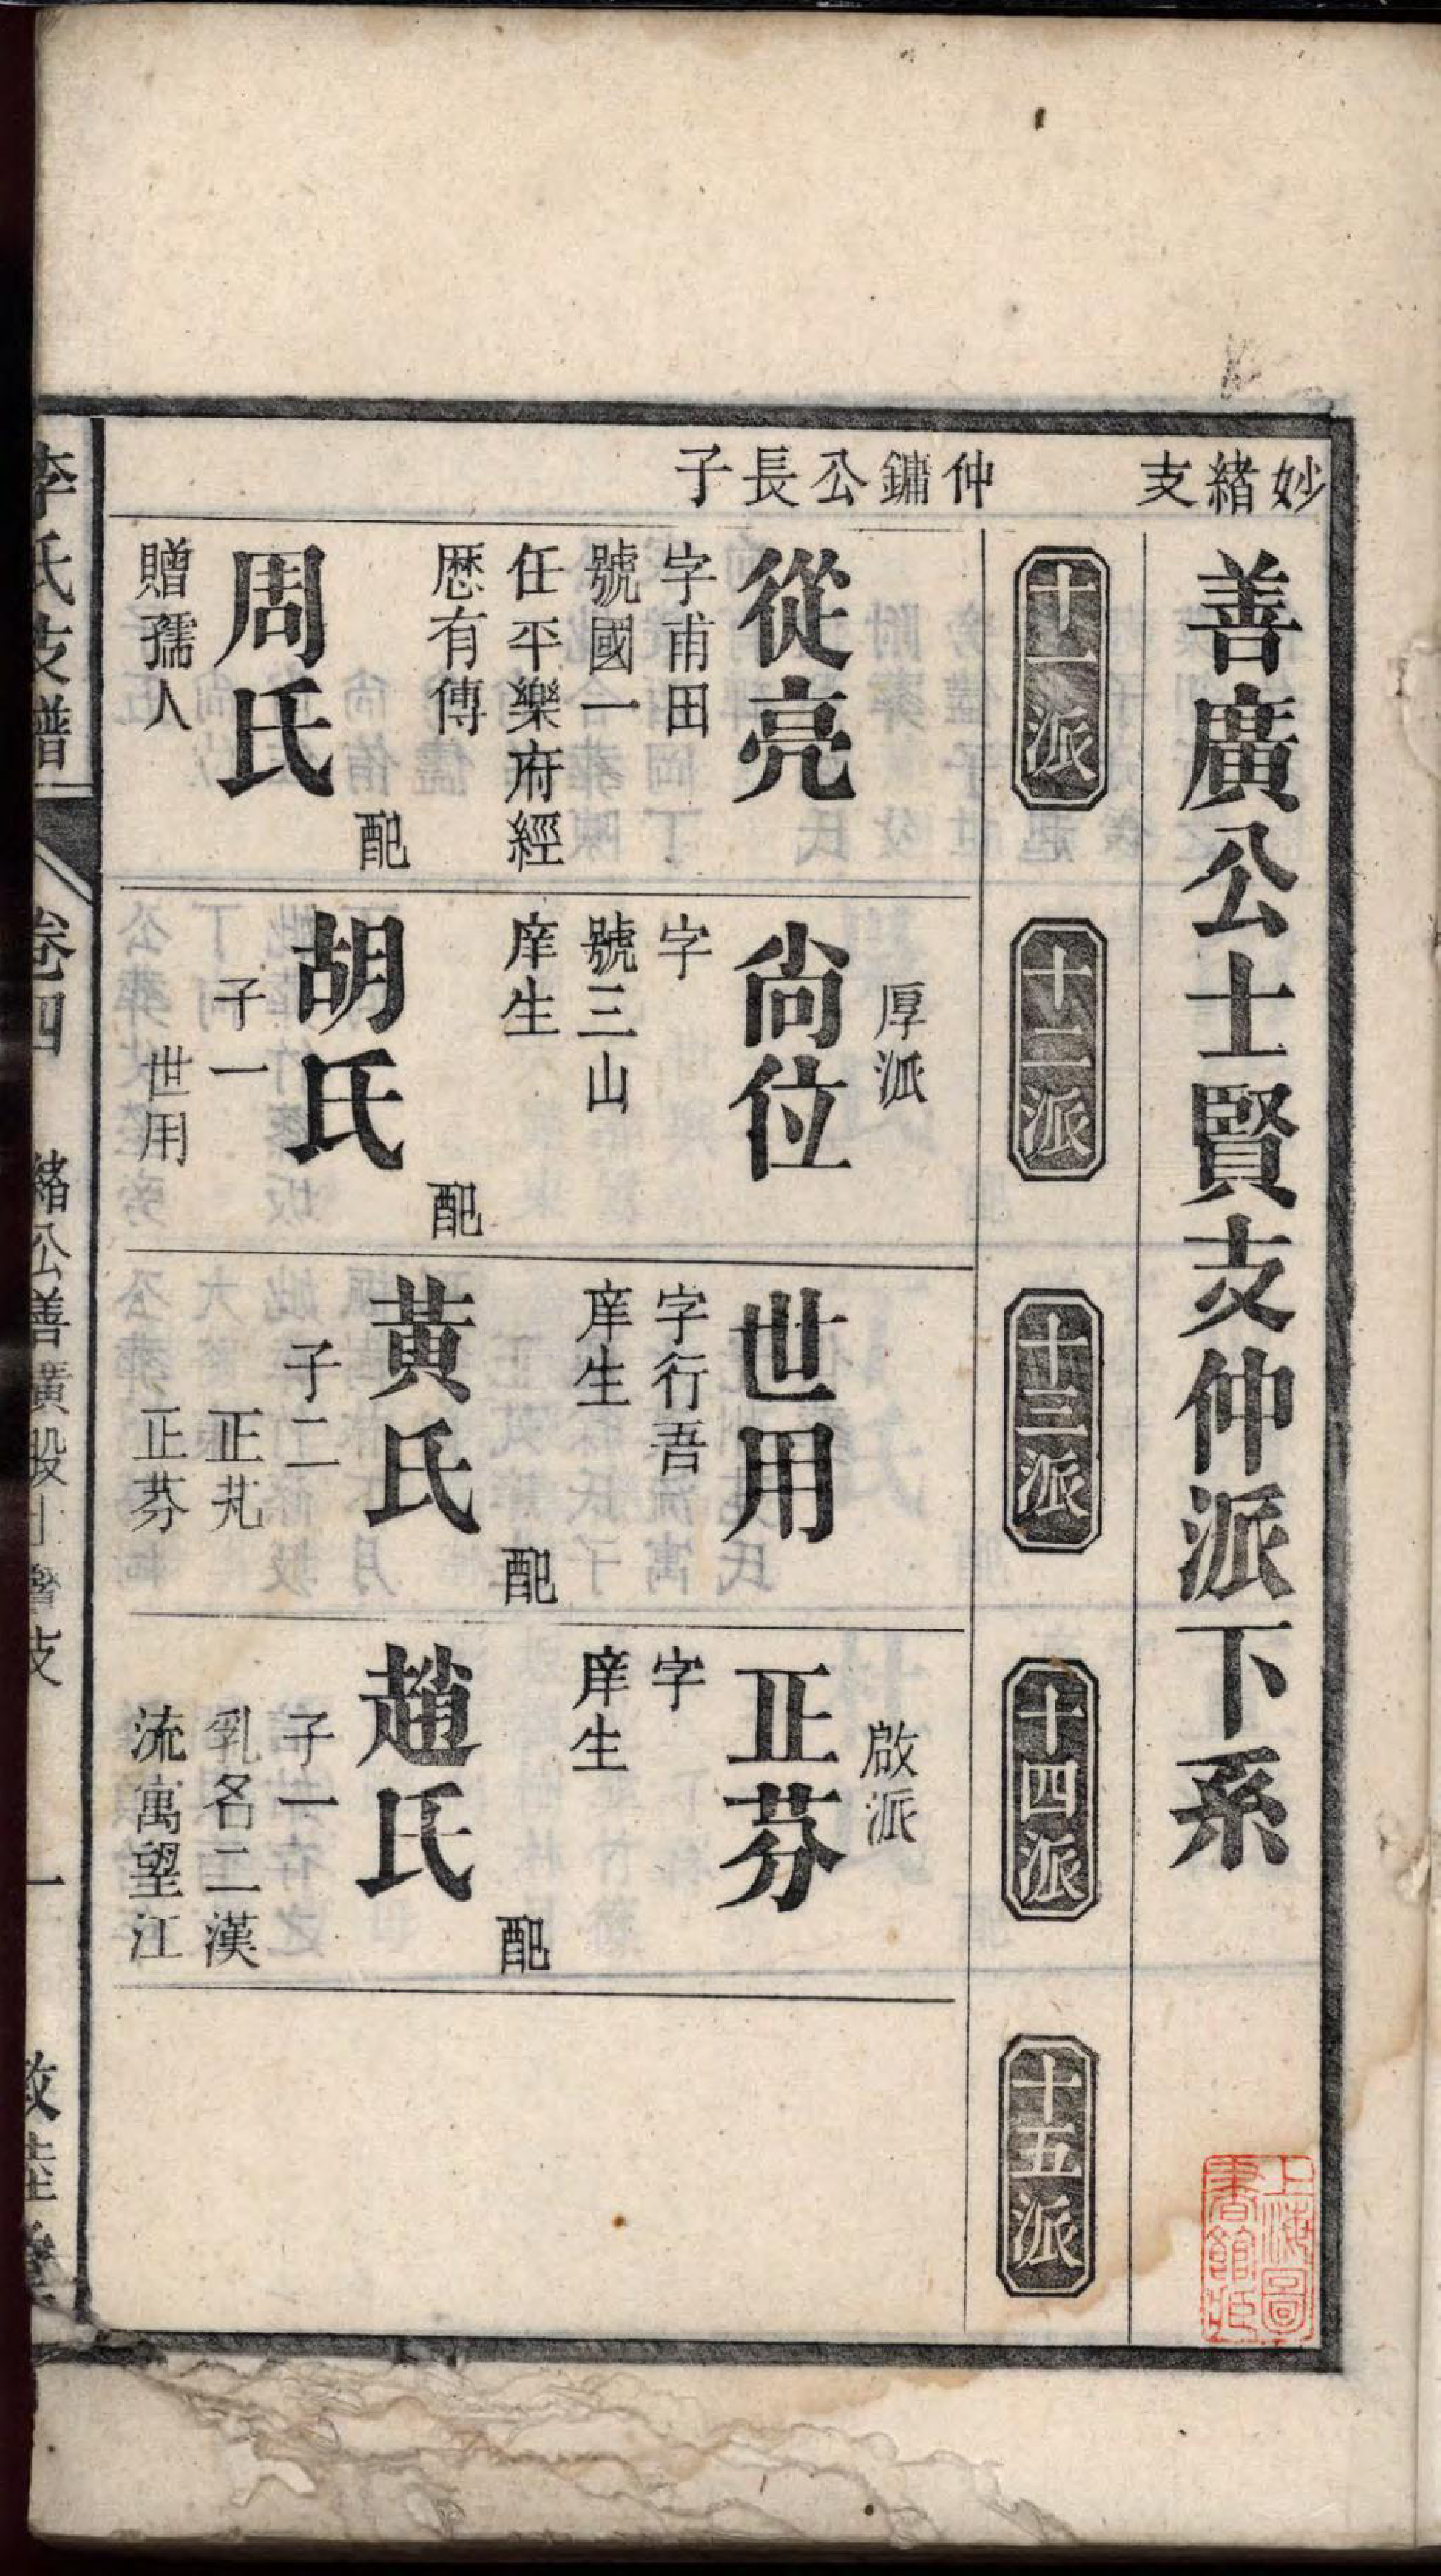 妙緒支
仲鏞公長子
善廣公士賢支仲派下系
十一派
十二派
十三派
十四派
十五派
從亮
字甫田
號國一
任平樂府經
歷有傳
配
周氏
贈孺人
厚派
尙位
字
號三山
庠生
配
胡氏
子一
世用
世用
字行吾
庠生
配
黃氏
子二
正芃
正芬
啟派
正芬
字
庠生
配
趙氏
子一
乳名二漢
流寓望江
李氏支譜
卷四
緒公善廣股士賢支
一
敦睦堂
上海圖
書館藏